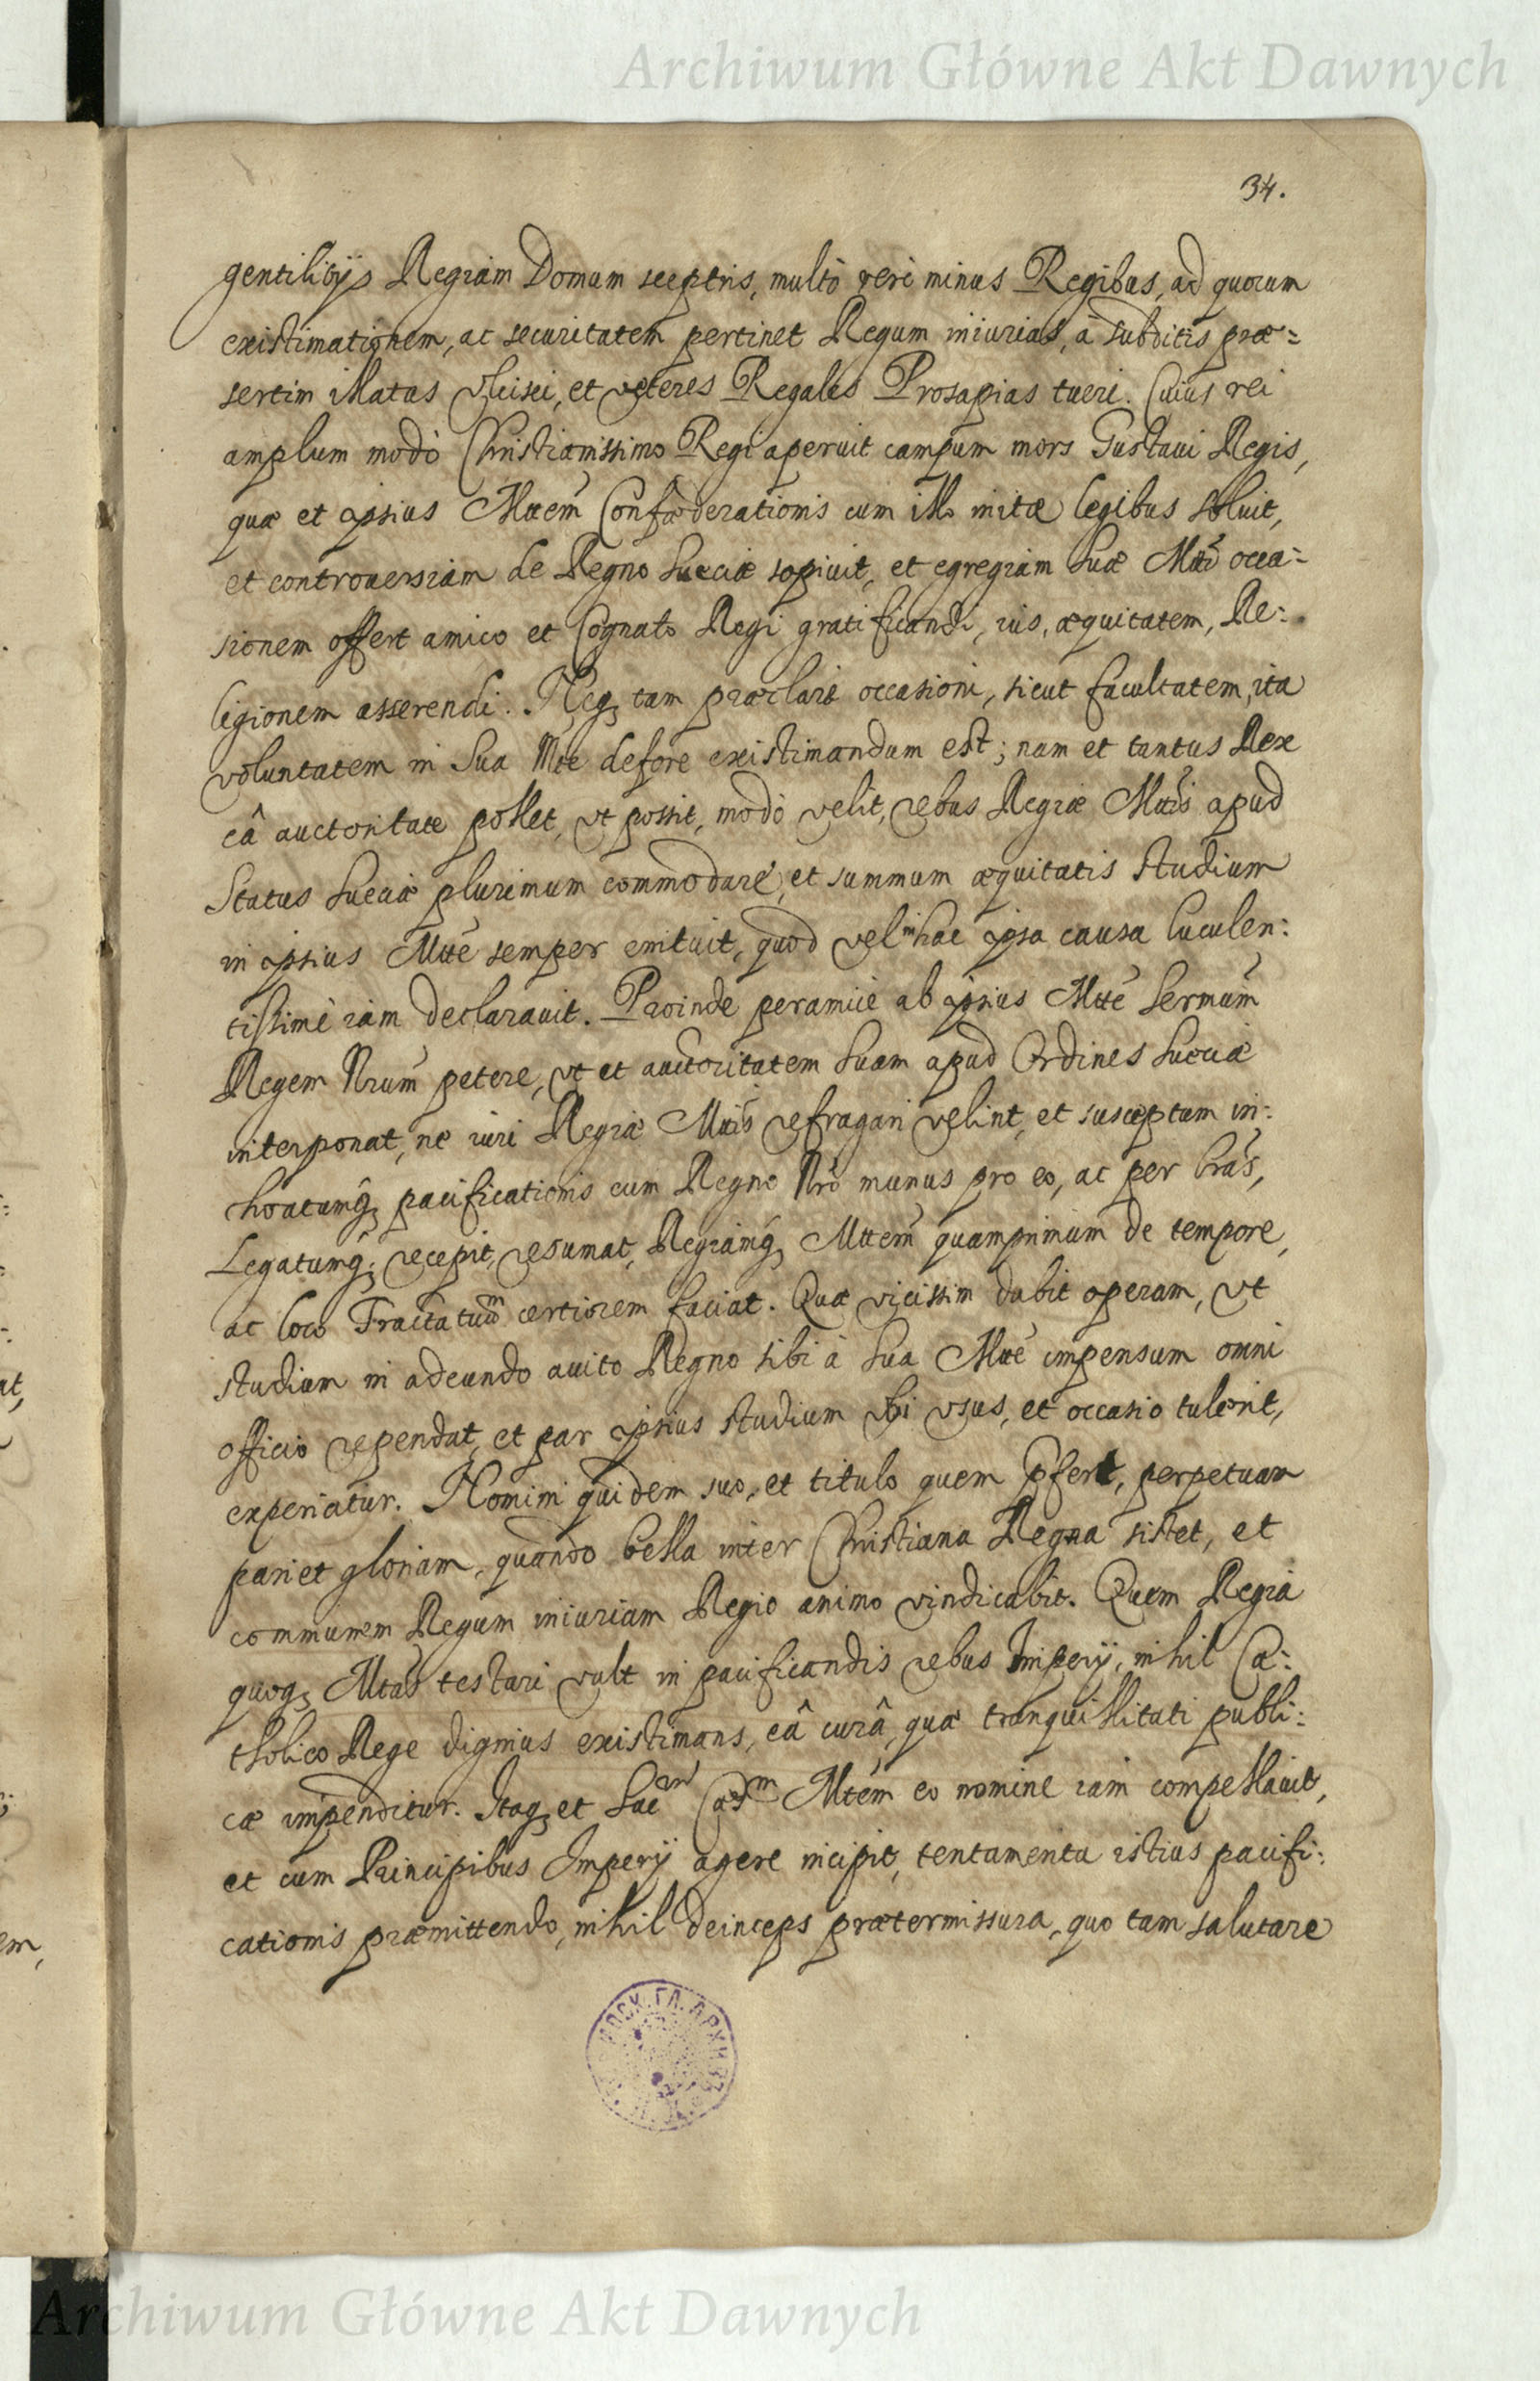 Archiwum Główne Akt Dawnych
34.
gentilitijs Regiam Domum sceptris, multò verè minus Regibus, ad quorum
existimationem, ac securitatem pertinet Regum iniurias, à subditis præ-
sertim illatas vlcisci, et veteres Regales Prosapias tueri. Cuius rei
amplum modò Christianissimo Regi aperuit campum mors Gustaui Regis,
quæ et ipsius Mttem Confæderationis cum illo initæ legibus soluit,
et controuersiam de Regno Sueciæ sopiuit, et egregiam Suæ Mtti occa-
sionem offert amico et Cognato Regi gratificandi, ius, æquitatem, Re-
ligionem asserendi. Neq₃ tam præclaræ occasioni, sicut facultatem, ita
voluntatem in Sua Mtte defore existimandum est; nam et tantus Rex
eâ auctoritate pollet, vt possit, modò velit, rebus Regiæ Mttis apud
Status Sueciæ plurimum commodare, et summum æquitatis studium
in ipsius Mtte semper enituit, quod vel in hac ipsa causa luculen:
tissimè iam declarauit. Proinde peramicè ab ipsius Mtte Sermum
Regem Nrum petere, vt et auctoritatem suam apud Ordines Sueciæ
interponat, ne iuri Regiæ Mttis refragari velint, et susceptum in:
choatumq₃ pacificationis cum Regno Nro munus pro eo, ac per lras,
Legatumq₃ recepit, resumat, Regiamq₃ Mttem quamprimum de tempore,
ac loco Tractatuum certiorem faciat. Quæ vicissim dabit operam, vt
studium in adeundo auito Regno sibi à Sua Mtte impensum omni
officio rependat, et par ipsius studium vbi vsus, et occasio tulerit,
experiatur. Nomini quidem suo, et titulo quem pfert, perpetuam
pariet gloriam, quando bella inter Christiana Regna sistet, et
communem Regum iniuriam Regio animo vindicabit. Quem Regia
quoq₃ Mtas testari vult in pacificandis rebus Imperij, nihil Ca:
tholico Rege dignius existimans, eâ curâ, quæ tranquillitati publi:
cæ impenditur. Itaq₃ et Sacm Cæsm Mtem eo nomine iam compellauit,
et cum Principibus Imperij agere incipit, tentamenta istius pacifi:
cationis præmittendo, nihil deinceps prætermissura, quo tam salutare
Archiwum Główne Akt Dawnych